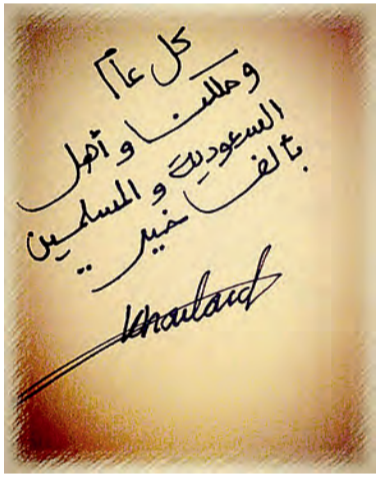 كل عام
و ملكنا و أهل
السعودية و المسلمين
بألف خير ..